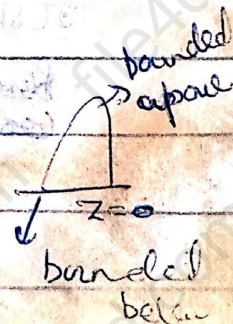 bounded
above
z=0
bounded
below